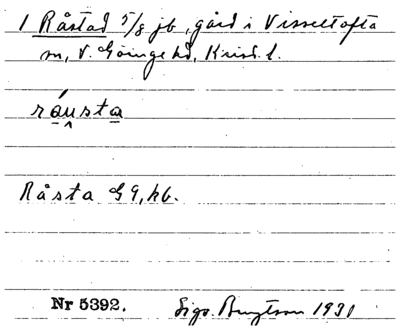 1 Råstad 5/8 jb, gård i Visseltofta
sn, V. Göinge hd, Krist. l.
ráu̯sta
Råsta GG, kb.
Nr 5392. Sigv. Bengtson 1931